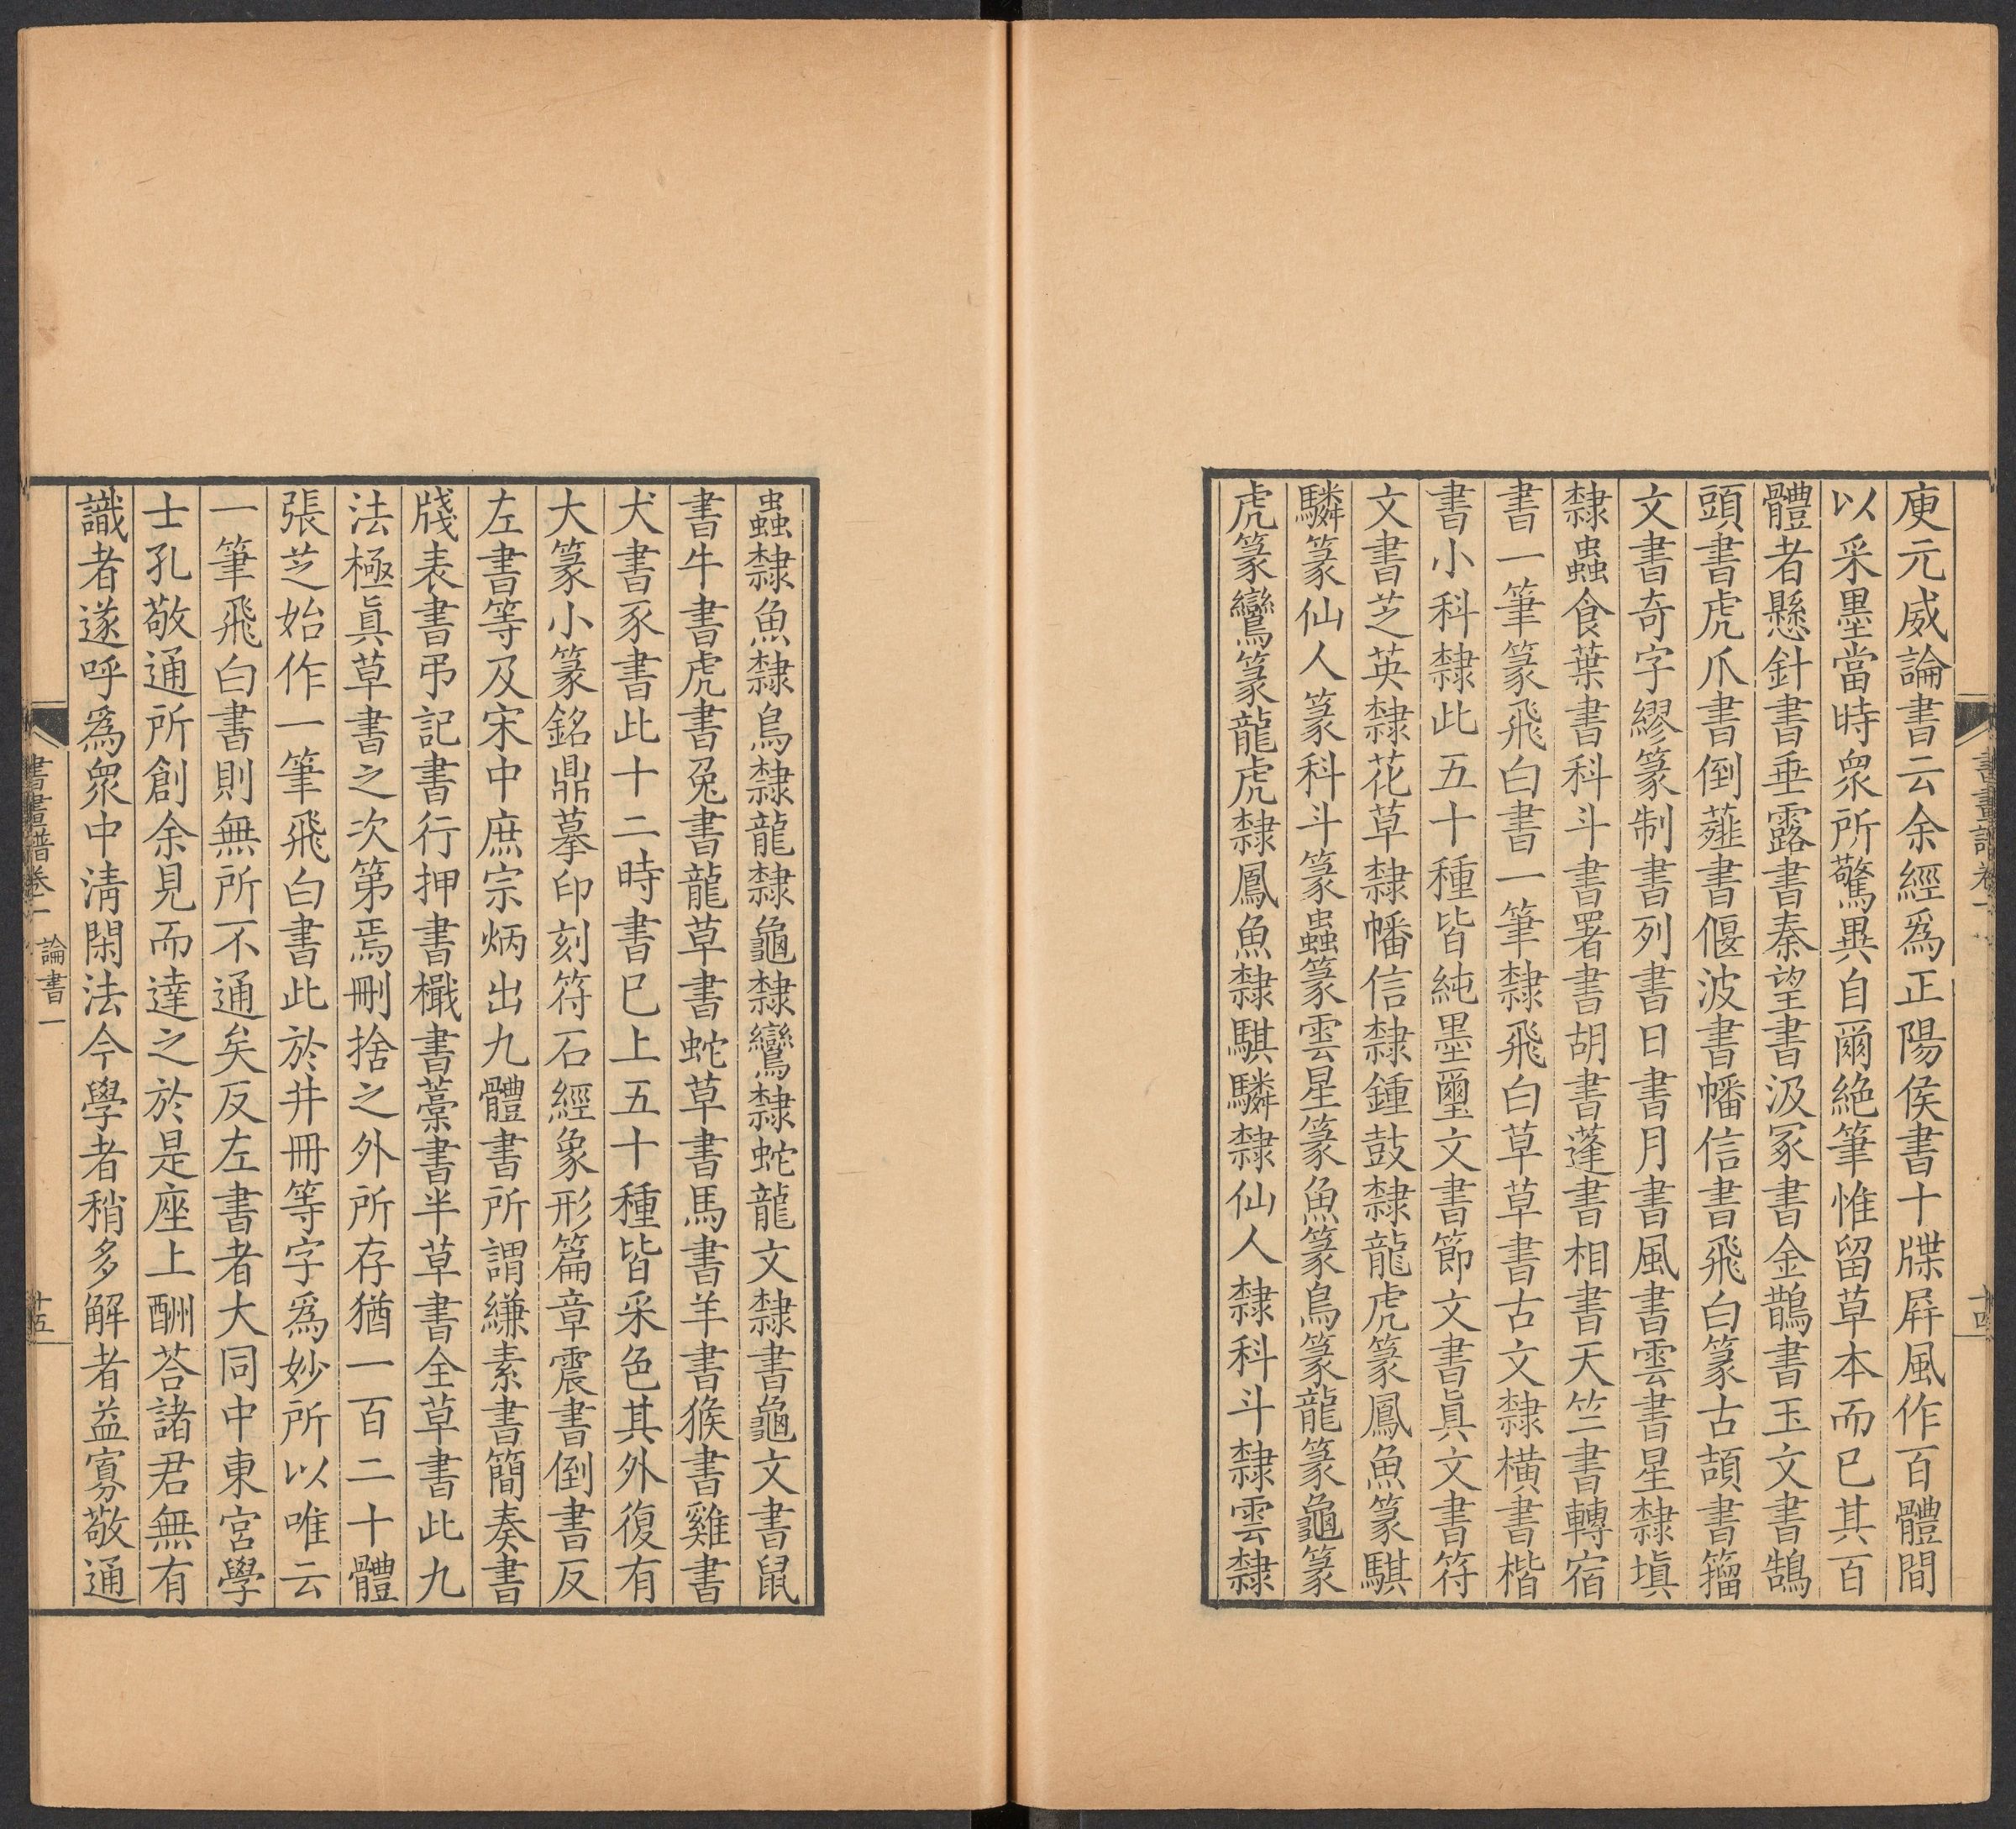 書畫譜卷一
十四
庾元威論書云余經爲正陽侯書十牒屛風作百體間
以采墨當時衆所驚異自爾絶筆惟留草本而已其百
體者懸針書垂露書秦望書汲冢書金鵲書玉文書鵠
頭書虎爪書倒薤書偃波書幡信書飛白篆古頡書籀
文書奇字繆篆制書列書日書月書風書雲書星隸塡
隸蟲食葉書科斗書署書胡書蓬書相書天竺書轉宿
書一筆篆飛白書一筆隸飛白草草書古文隸橫書楷
書小科隸此五十種皆純墨璽文書節文書眞文書符
文書芝英隸花草隸幡信隸鍾鼓隸龍虎篆鳳魚篆騏
驎篆仙人篆科斗篆蟲篆雲星篆魚篆鳥篆龍篆龜篆
虎篆鸞篆龍虎隸鳳魚隸騏驎隸仙人隸科斗隸雲隸
蟲隸魚隸鳥隸龍隸龜隸鸞隸蛇龍文隸書龜文書鼠
書牛書虎書兔書龍草書蛇草書馬書羊書猴書雞書
犬書豕書此十二時書已上五十種皆采色其外復有
大篆小篆銘鼎摹印刻符石經象形篇章震書倒書反
左書等及宋中庶宗炳出九體書所謂縑素書簡奏書
牋表書弔記書行押書檝書藁書半草書全草書此九
法極眞草書之次第焉刪捨之外所存猶一百二十體
張芝始作一筆飛白書此於井冊等字爲妙所以唯云
一筆飛白書則無所不通矣反左書者大同中東宮學
士孔敬通所創余見而達之於是座上酬荅諸君無有
識者遂呼爲衆中淸閑法今學者稍多解者益寡敬通
書畫譜卷一
論書一
十五